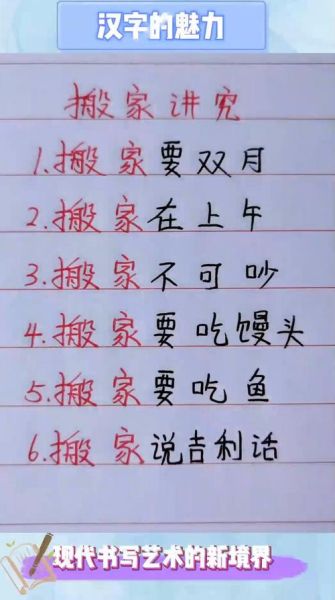 汉字的魅力
搬家讲究
1.搬家要双月
2.搬家在上午
3.搬家不可吵
4.搬家要吃馒头
5.搬家要吃鱼
6.搬家说吉利话
现代书写艺术的新境界